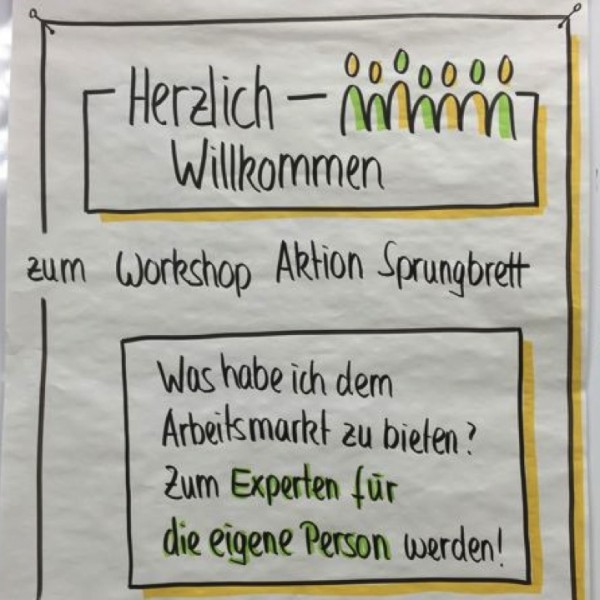 Herzlich
Willkommen
zum Workshop Aktion Sprungbrett
Was habe ich dem
Arbeitsmarkt zu bieten?
Zum Experten für
die eigene Person werden!